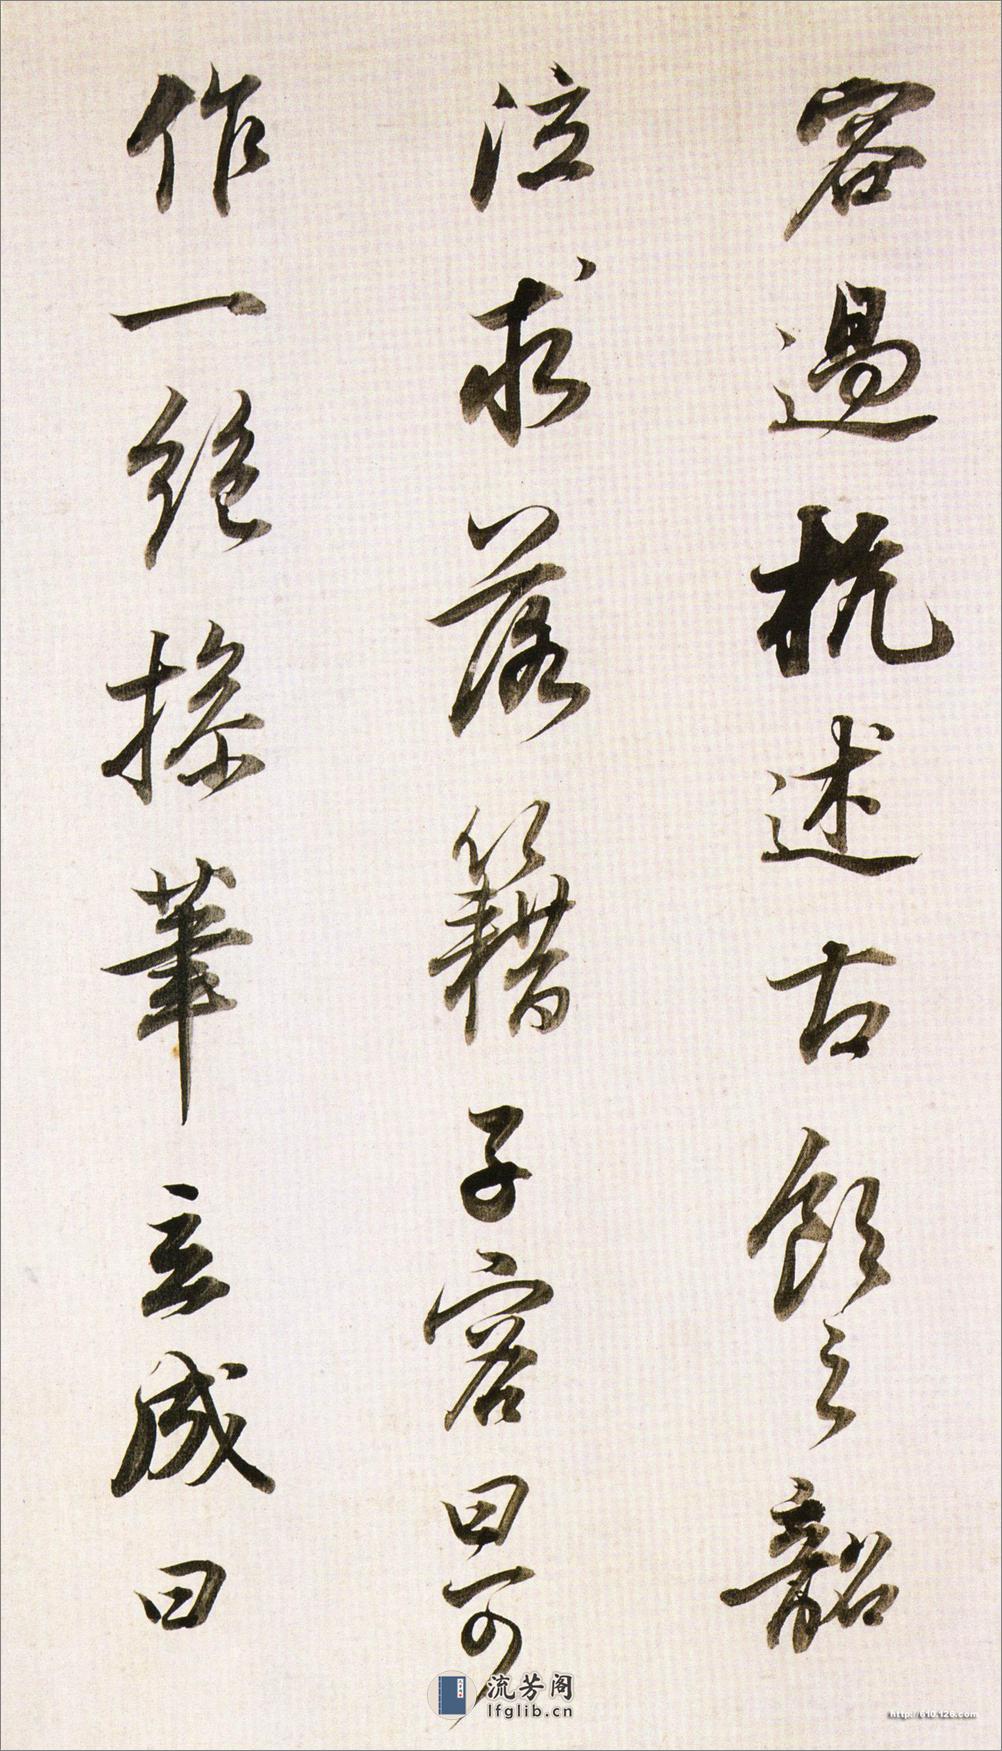 容過杭述古飲之韶
泣求落籍子容曰可
作一絕操筆立成曰
流芳阁
lfglib.cn
http://610.126.com